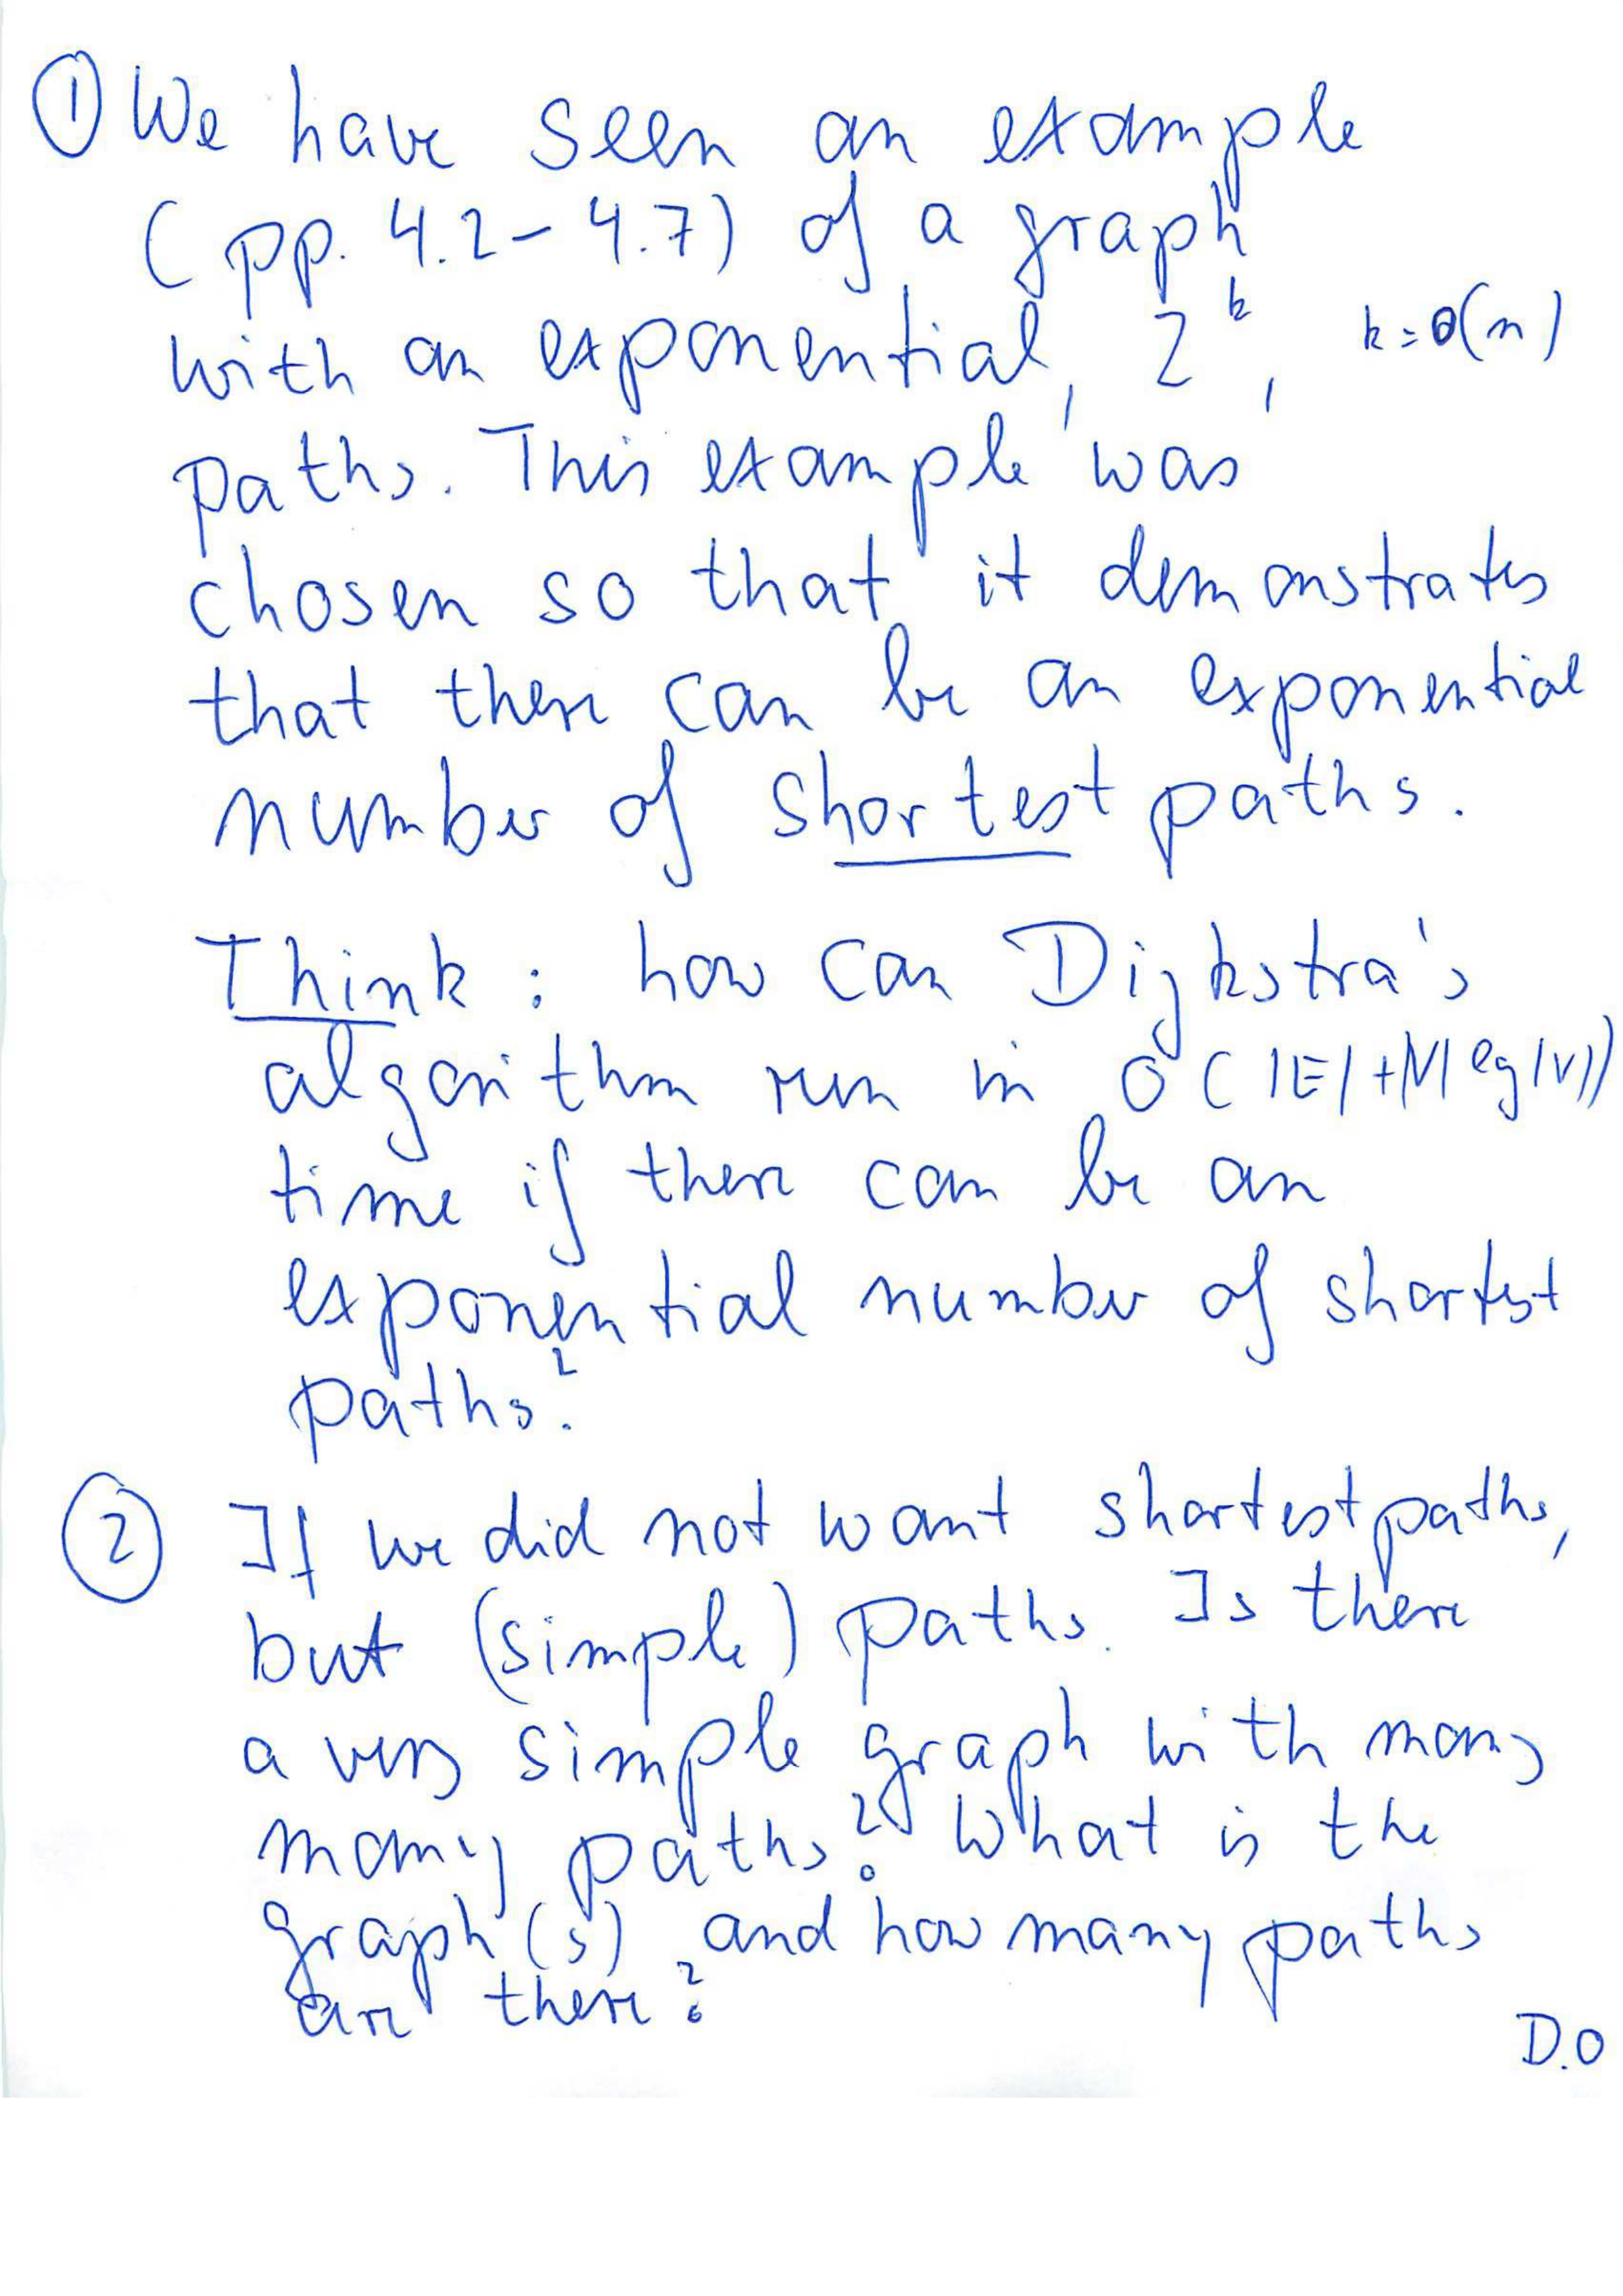 ① We have seen an example
(pp. 4.2-4.7) of a graph
with an exponential, 2^k, k=θ(n)
paths. This example was
chosen so that it demonstrates
that there can be an exponential
number of shortest paths.
Think: how can Dijkstra's
algorithm run in O(|E|+|V| lg|V|)
time if there can be an
exponential number of shortest
paths?
② If we did not want shortest paths,
but (simple) paths. Is there
a very simple graph with many
many paths? What is the
graph(s) and how many paths
are there?
D.O